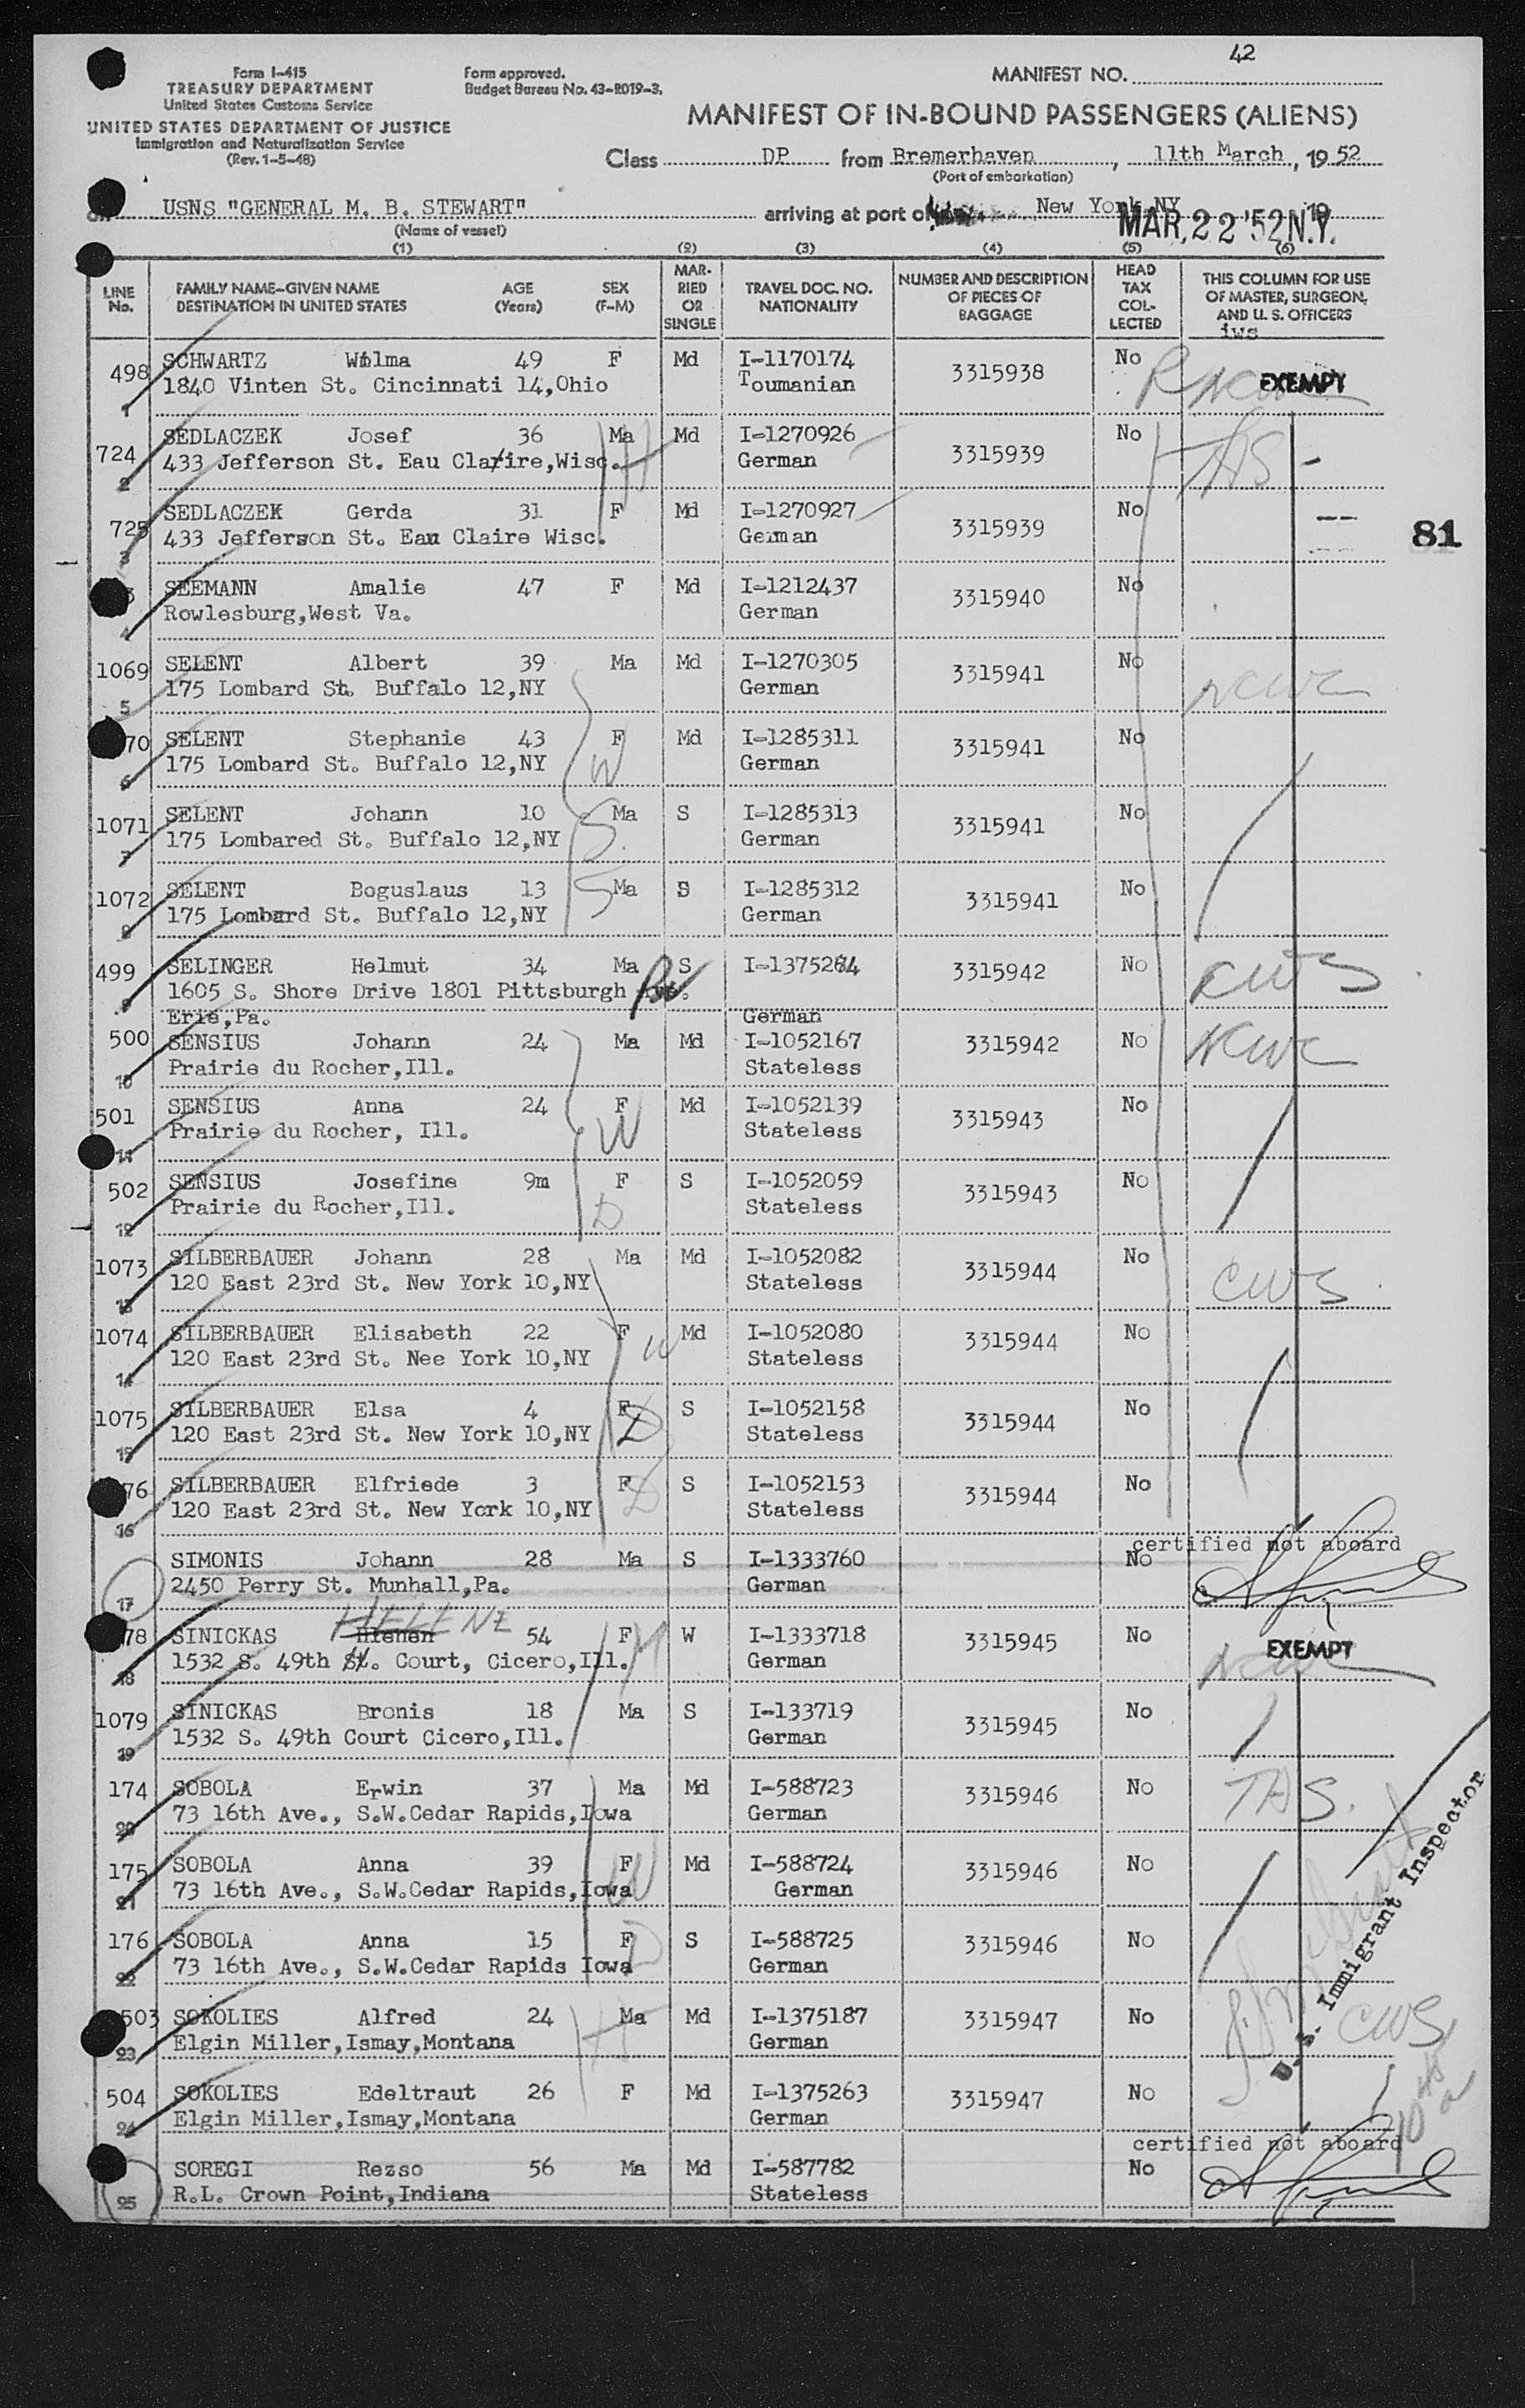 42
Form I-415
TREASURY DEPARTMENT
United States Customs Service
UNITED STATES DEPARTMENT OF JUSTICE
Immigration and Naturalization Service
(Rev. 1-5-48)
Form approved.
Budget Bureau No. 43-R019-3.
MANIFEST NO.
MANIFEST OF IN-BOUND PASSENGERS (ALIENS)
Class DP from Bremerhaven, 11th March, 19 52
(Port of embarkation)
USNS "GENERAL M. B. STEWART" arriving at port of New York, NY 19
(Name of vessel)
MAR. 22 '52 N.Y.
(1) (2) (3) (4) (5) (6)
LINE No. FAMILY NAME-GIVEN NAME DESTINATION IN UNITED STATES AGE (Years) SEX (F-M) MARRIED OR SINGLE TRAVEL DOC. NO. NATIONALITY NUMBER AND DESCRIPTION OF PIECES OF BAGGAGE HEAD TAX COLLECTED THIS COLUMN FOR USE OF MASTER, SURGEON, AND U. S. OFFICERS
iws
498 SCHWARTZ Wilma 49 F Md I-1170174 3315938 No NCWC EXEMPT
1 1840 Vinten St. Cincinnati 14,Ohio Toumanian
724 SEDLACZEK Josef 36 Ma Md I-1270926 3315939 No
2 433 Jefferson St. Eau Claire,Wisc. H German
725 SEDLACZEK Gerda 31 F Md I-1270927 3315939 No
3 433 Jefferson St. Eau Claire Wisc. German
81
3 SEEMANN Amalie 47 F Md I-1212437 3315940 No
4 Rowlesburg,West Va. German
1069 SELENT Albert 39 Ma Md I-1270305 3315941 No NCWC
5 175 Lombard St. Buffalo 12,NY German
70 SELENT Stephanie 43 F W Md I-1285311 3315941 No
6 175 Lombard St. Buffalo 12,NY German
1071 SELENT Johann 10 Ma S S I-1285313 3315941 No
7 175 Lombared St. Buffalo 12,NY German
1072 SELENT Boguslaus 13 Ma S S I-1285312 3315941 No
8 175 Lombard St. Buffalo 12,NY German
499 SELINGER Helmut 34 Ma S I-1375264 3315942 No CWS
9 1605 S. Shore Drive 1801 Pittsburgh Ave.
Erie,Pa. German
500 SENSIUS Johann 24 Ma Md I-1052167 3315942 No NCWC
10 Prairie du Rocher,Ill. Stateless
501 SENSIUS Anna 24 F W Md I-1052139 3315943 No
11 Prairie du Rocher, Ill. Stateless
502 SENSIUS Josefine 9m F D S I-1052059 3315943 No
12 Prairie du Rocher,Ill. Stateless
1073 SILBERBAUER Johann 28 Ma Md I-1052082 3315944 No CWS
13 120 East 23rd St. New York 10,NY Stateless
1074 SILBERBAUER Elisabeth 22 F W Md I-1052080 3315944 No
14 120 East 23rd St. Nee York 10,NY Stateless
1075 SILBERBAUER Elsa 4 F D S I-1052158 3315944 No
15 120 East 23rd St. New York 10,NY Stateless
76 SILBERBAUER Elfriede 3 F D S I-1052153 3315944 No
16 120 East 23rd St. New York 10,NY Stateless
certified not aboard
SIMONIS Johann 28 Ma S I-1333760 No
17 2450 Perry St. Munhall,Pa. German
HELENE
78 SINICKAS Hienen 54 F M W I-1333718 3315945 No NCWC EXEMPT
18 1532 S. 49th St. Court, Cicero,Ill. German
1079 SINICKAS Bronis 18 Ma S I-133719 3315945 No
19 1532 S. 49th Court Cicero,Ill. German
174 SOBOLA Erwin 37 Ma Md I-588723 3315946 No TAS.
20 73 16th Ave., S.W.Cedar Rapids,Iowa German
175 SOBOLA Anna 39 F W Md I-588724 3315946 No
21 73 16th Ave., S.W.Cedar Rapids,Iowa German
176 SOBOLA Anna 15 F D S I-588725 3315946 No
22 73 16th Ave., S.W.Cedar Rapids Iowa German
U.S. Immigrant Inspector
503 SOKOLIES Alfred 24 Ma H Md I-1375187 3315947 No CWS
23 Elgin Miller,Ismay,Montana German
504 SOKOLIES Edeltraut 26 F Md I-1375263 3315947 No
24 Elgin Miller,Ismay,Montana German
certified not aboard
SOREGI Rezso 56 Ma Md I-587782 No
25 R.L. Crown Point,Indiana Stateless